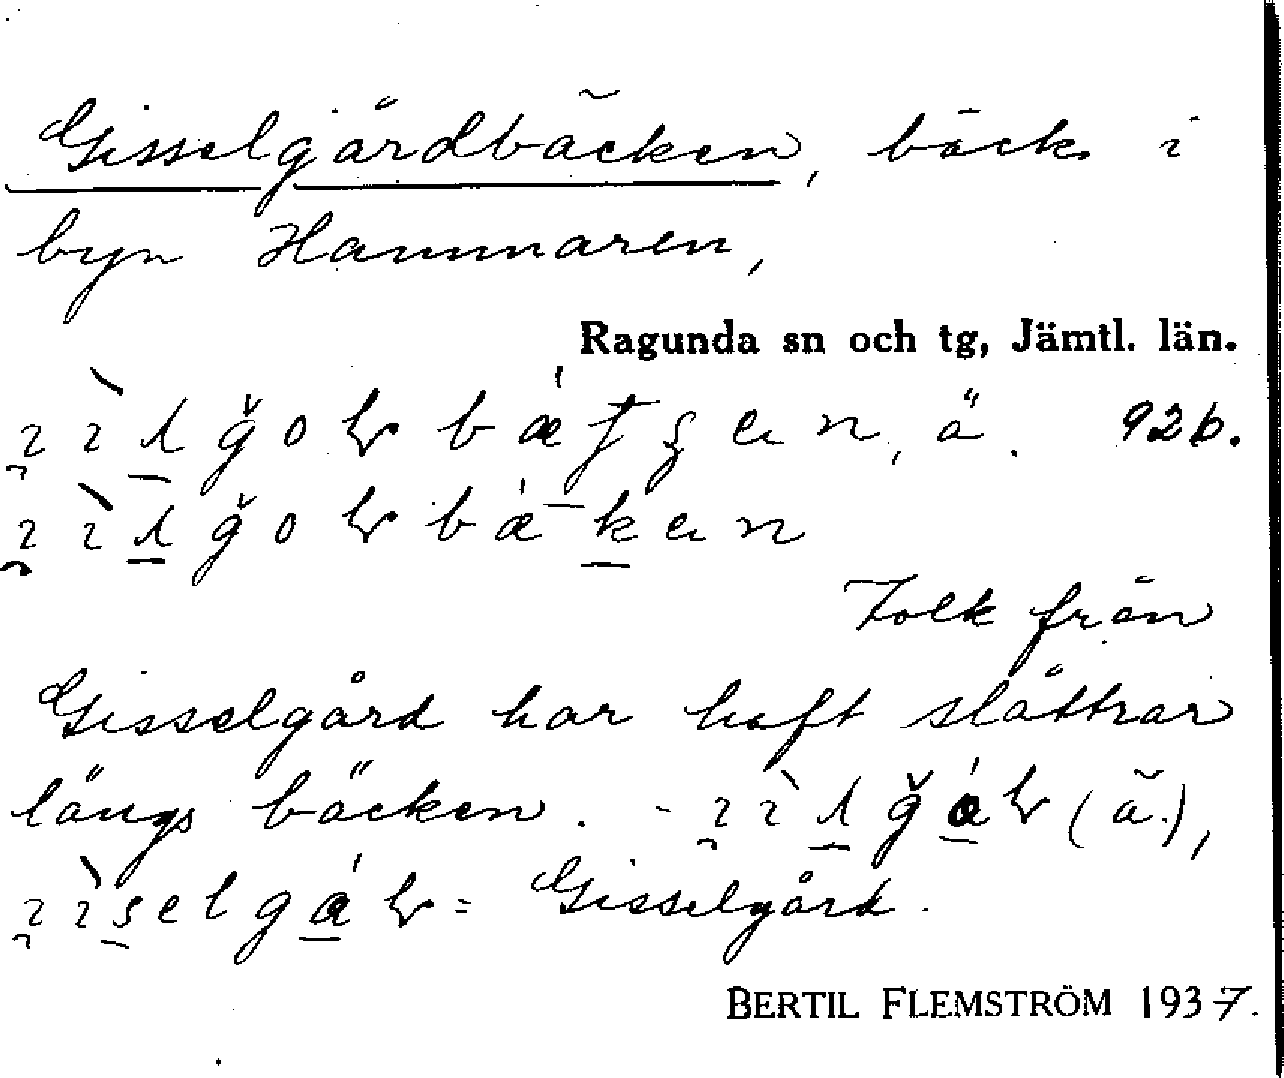 Gisselgårdbäcken, bäck i
byn Hammaren,
Ragunda sn och tg, Jämtl. län.
ä. 92b.
Folk från
Gisselgård har haft slåttrar
längs bäcken. - (ä.),
= Gisselgård.
BERTIL FLEMSTRÖM 1937.